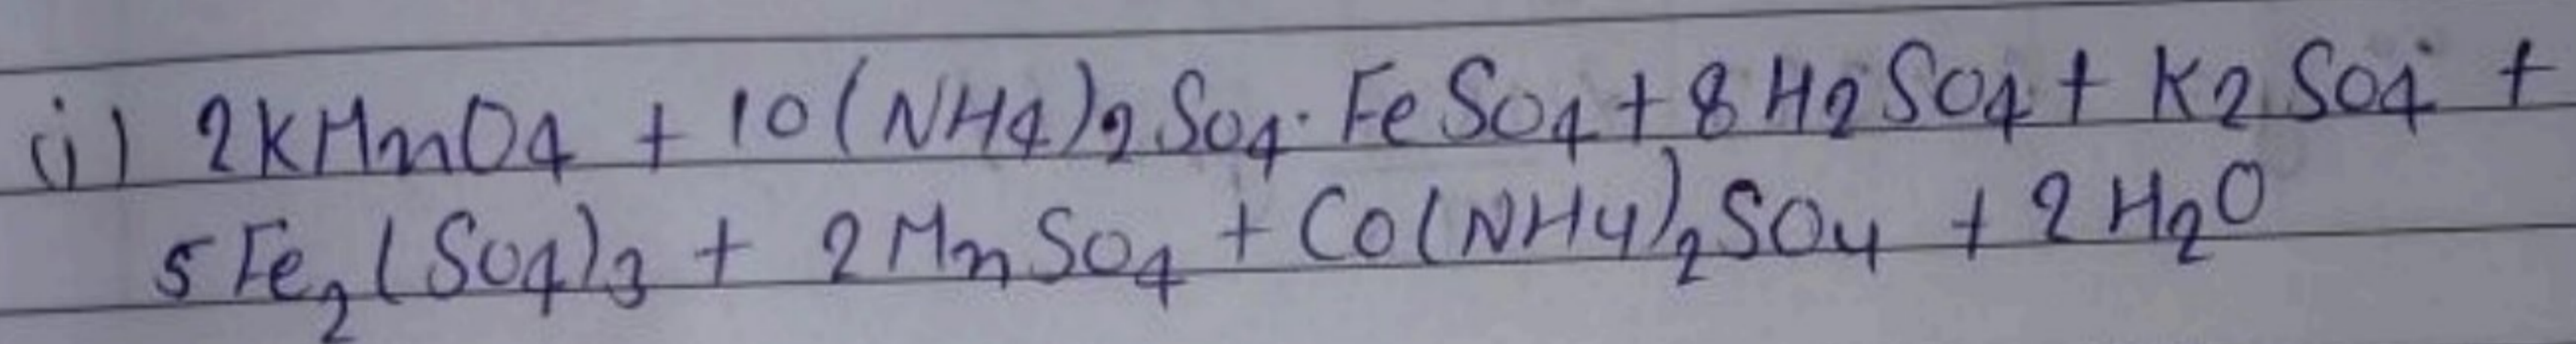 (i) 2KMnO4 + 10(NH4)2SO4. FeSO4 + 8H2SO4 + K2SO4 +
5Fe2(SO4)3 + 2MnSO4 + Co(NH4)2SO4 + 2H2O